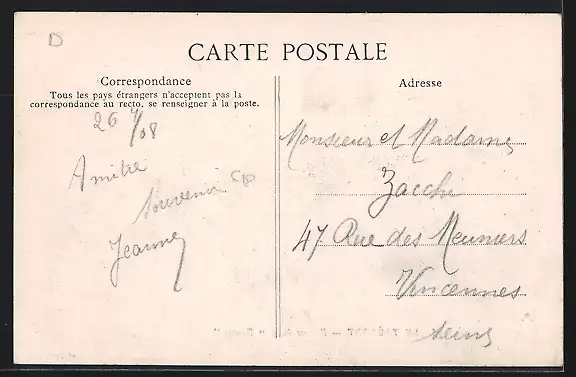 D
CARTE POSTALE
Correspondance
Tous les pays étrangers n'acceptent pas la
correspondance au recto, se renseigner à la poste.
26 4/08
Amitié
Souvenir
Jeanne
Adresse
Monsieur et Madame
Zacchi
47 Rue des Meuniers
Vincennes
Seine